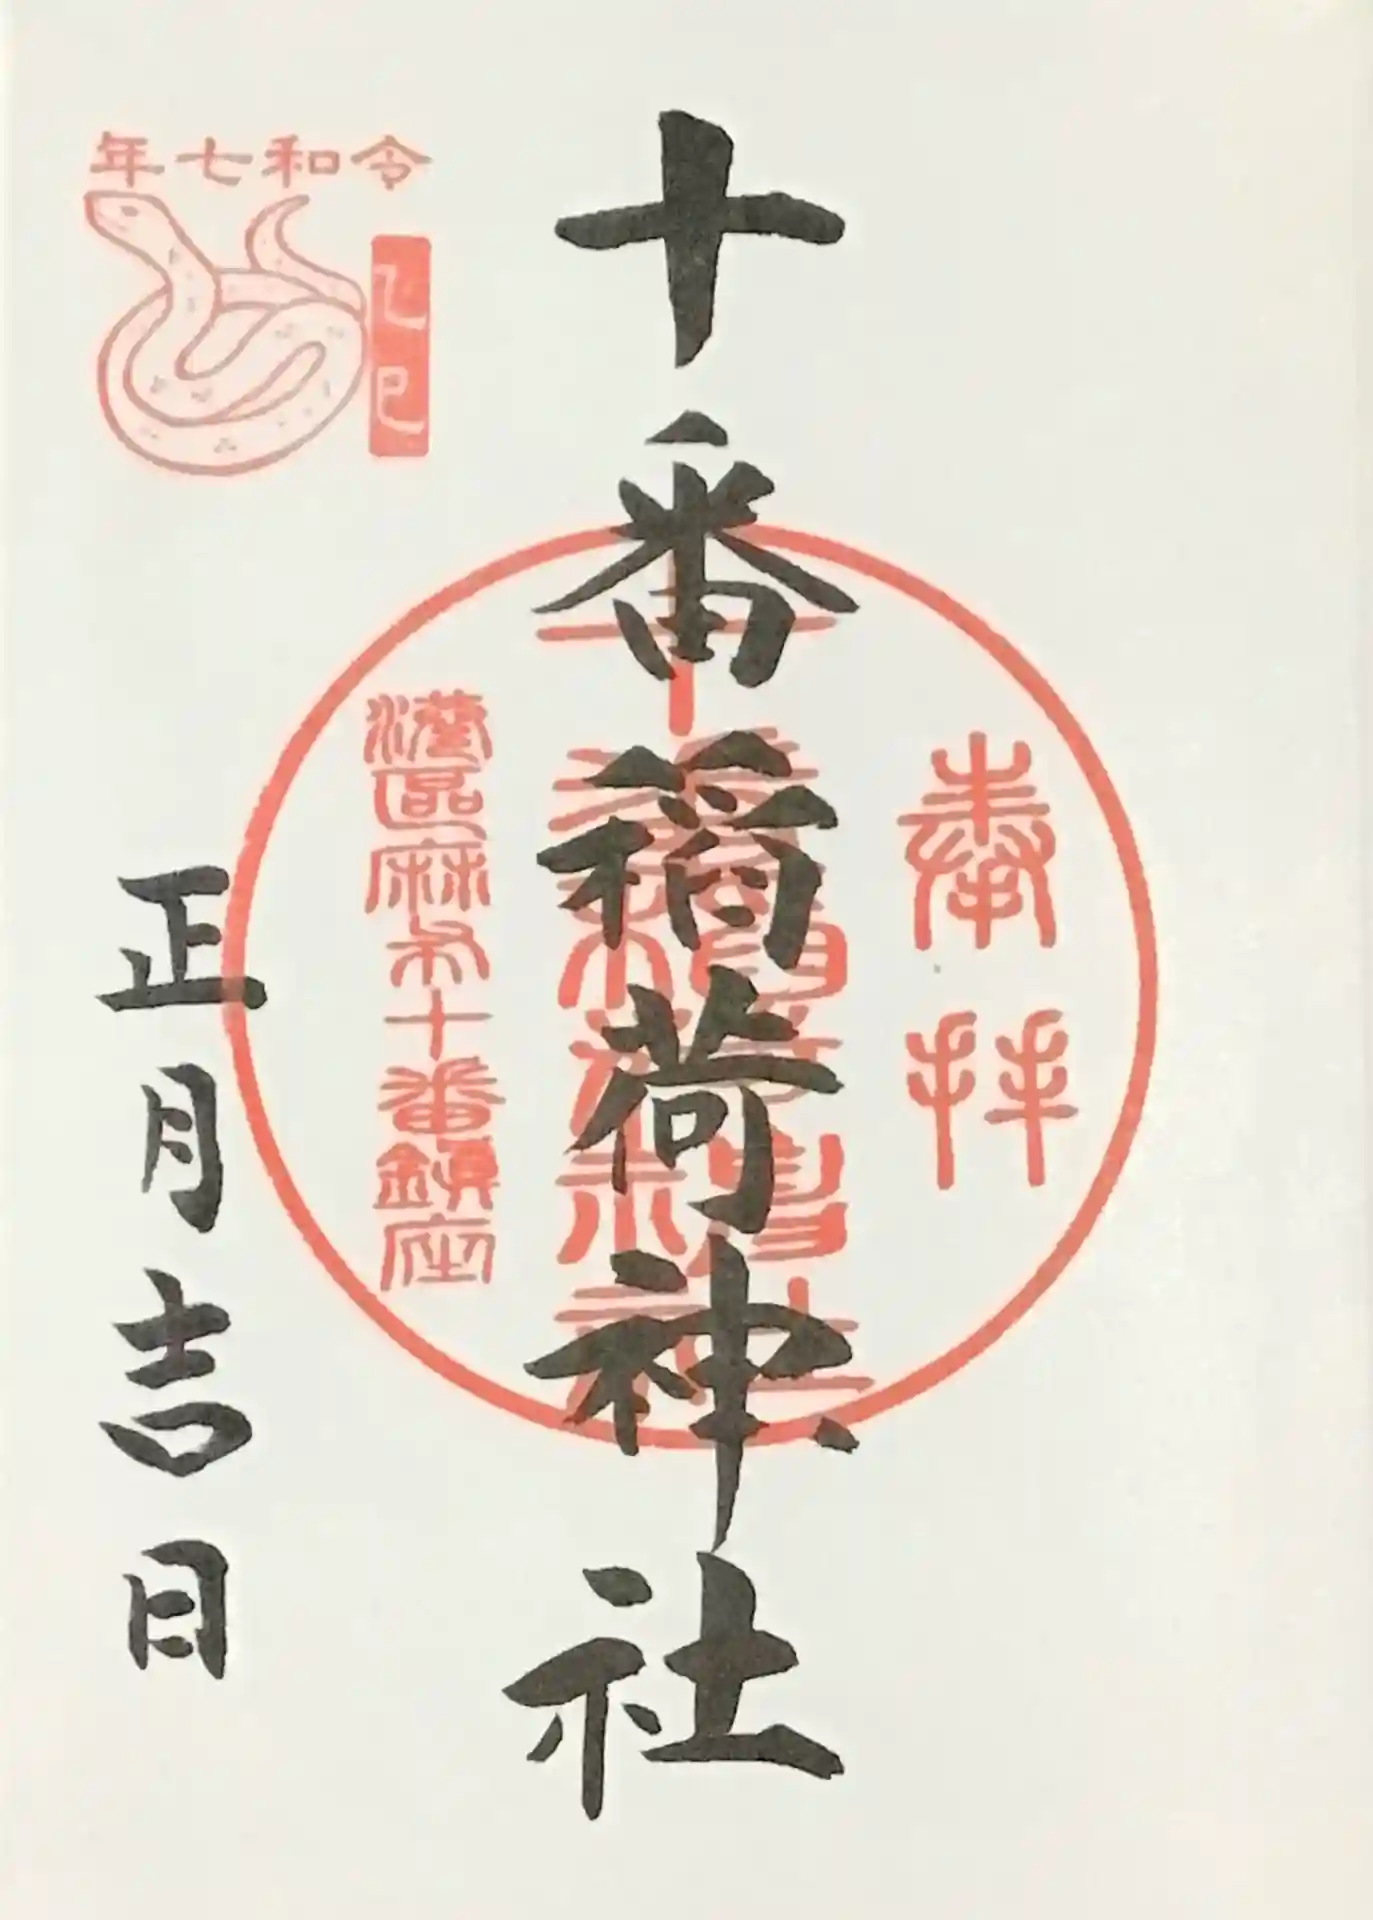 奉拝
十番稲荷神社
十番稲荷神社
港區麻布十番鎮座
正月吉日
令和七年
乙巳